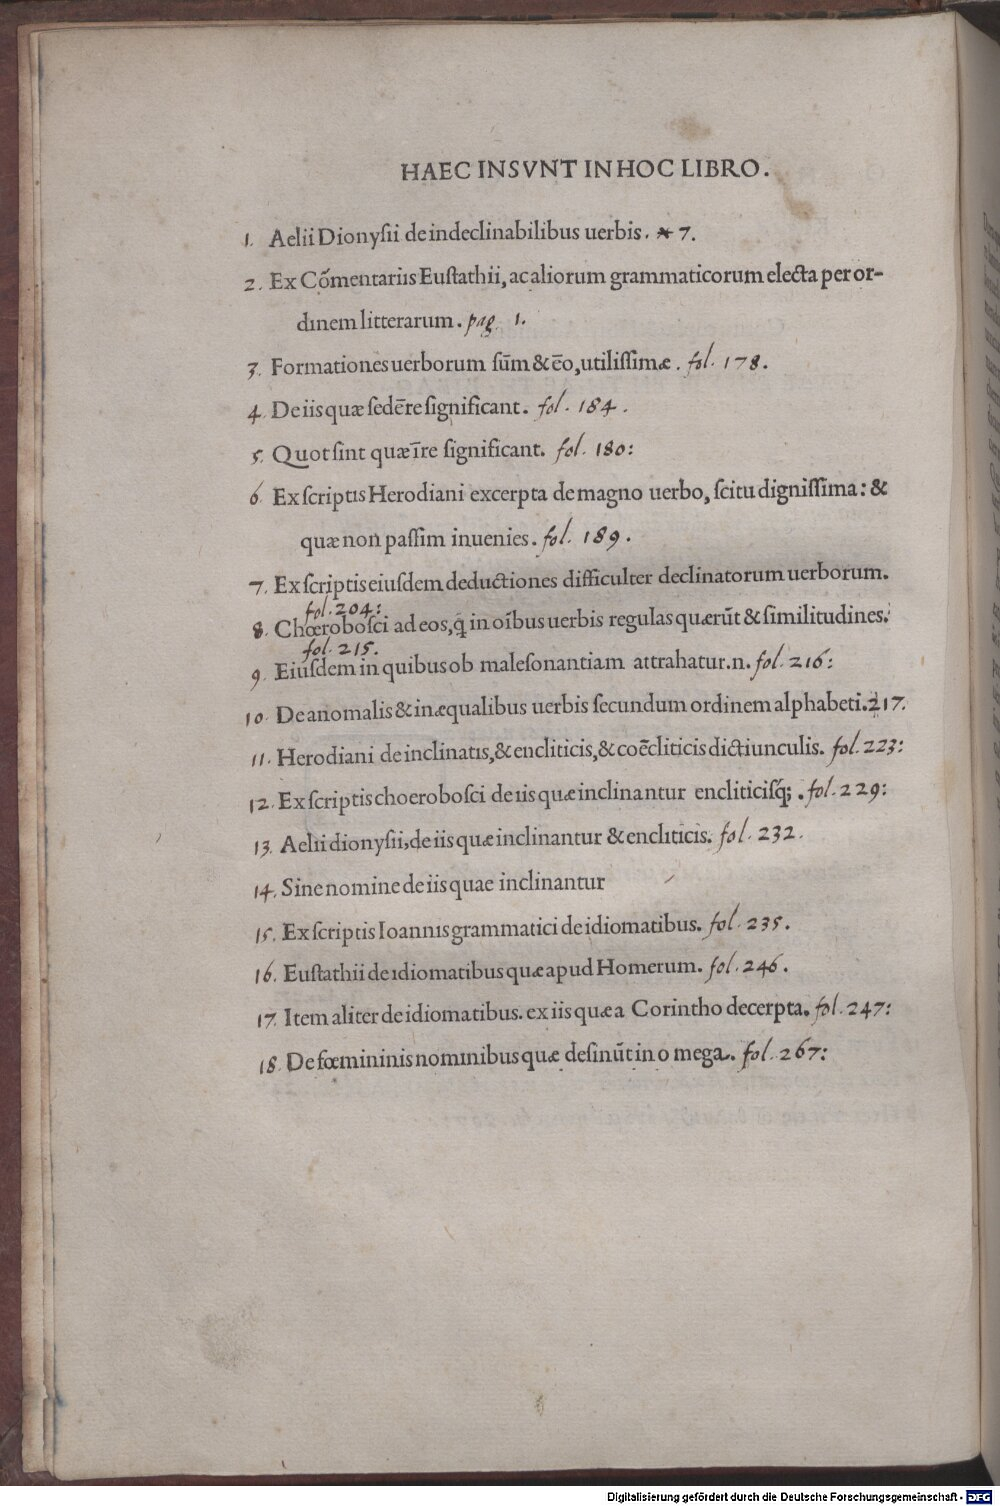 HAEC INSVNT IN HOC LIBRO.
1. Aelii Dionysii de indeclinabilibus uerbis. * 7.
2. Ex Cōmentariis Eustathii, ac aliorum grammaticorum electa per or-
dinem litterarum. pag 1.
3. Formationes uerborum sūm & ēo, utilissimæ. fol. 178.
4. De iis quæ sedēre significant. fol. 184.
5. Quot sint quæ īre significant. fol. 180:
6. Ex scriptis Herodiani excerpta de magno uerbo, scitu dignissima: &
quæ non passim inuenies. fol. 189.
7. Ex scriptis eiusdem deductiones difficulter declinatorum uerborum.
fol. 204:
8. Chœrobosci ad eos, q̄ in oībus uerbis regulas quærūt & similitudines.
fol. 215.
9. Eiusdem in quibus ob malesonantiam attrahatur .n. fol. 216:
10. De anomalis & inæqualibus uerbis secundum ordinem alphabeti. 217.
11. Herodiani de inclinatis, & encliticis, & coēcliticis dictiunculis. fol. 223:
12. Ex scriptis choerobosci de iis quæ inclinantur encliticisq̄;. fol. 229:
13. Aelii dionysii, de iis quæ inclinantur & encliticis. fol. 232.
14. Sine nomine de iis quae inclinantur
15. Ex scriptis Ioannis grammatici de idiomatibus. fol. 235.
16. Eustathii de idiomatibus quæ apud Homerum. fol. 246.
17. Item aliter de idiomatibus. ex iis quæ a Corintho decerpta. fol. 247:
18. De fœmininis nominibus quæ desinūt in o mega. fol. 267:
Digitalisierung gefördert durch die Deutsche Forschungsgemeinschaft - DFG